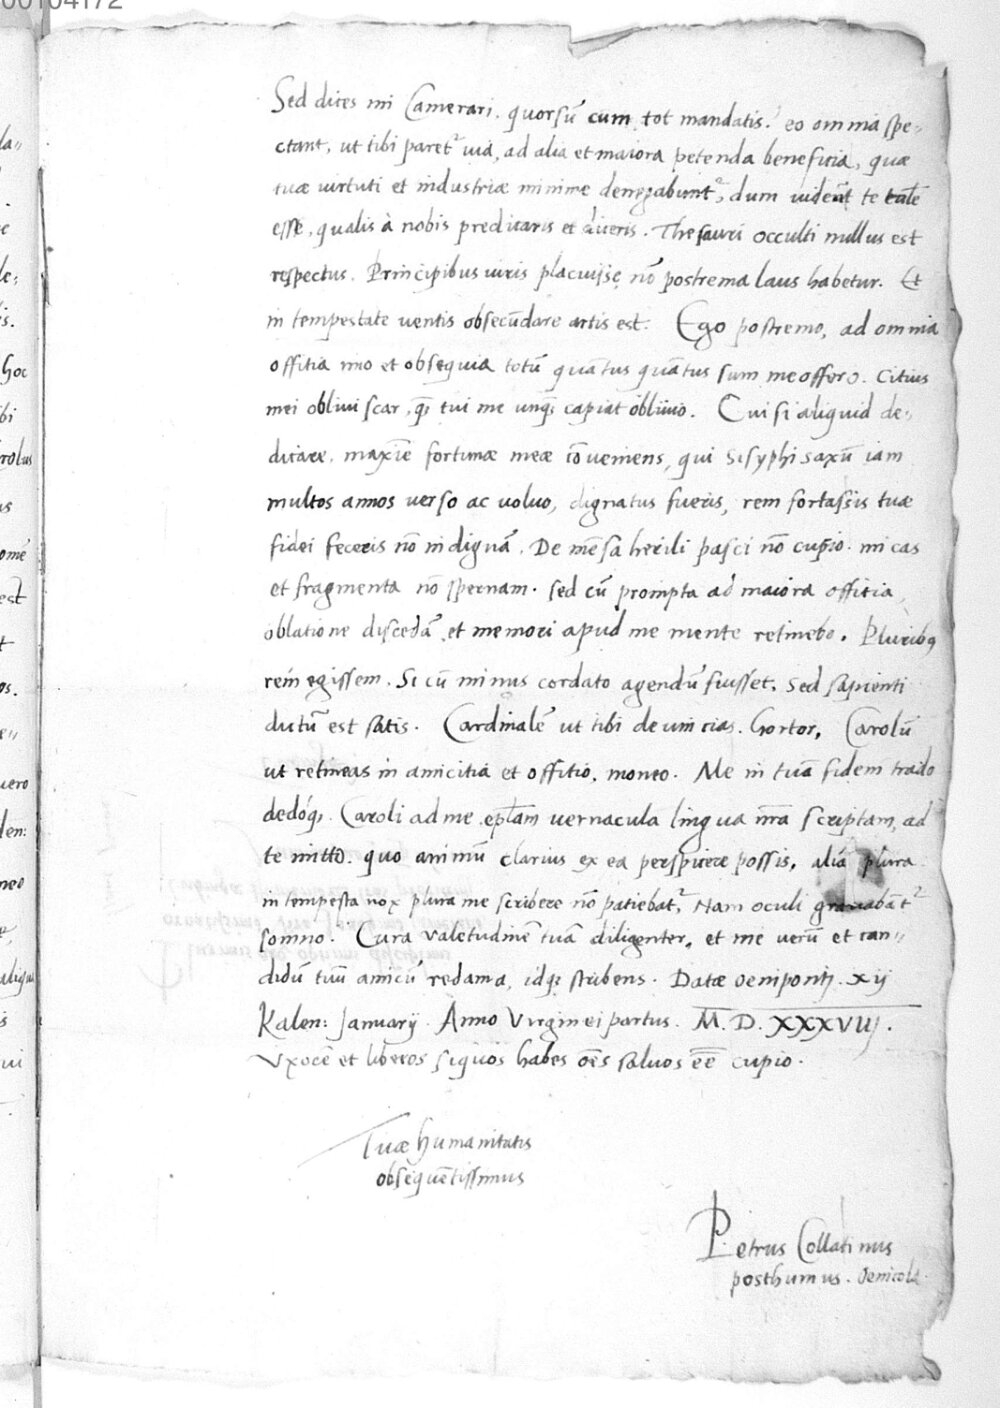 Sed dices mi Camerari. quorsū cum tot mandatis? eo omnia spe-
ctant, ut tibi paret² uia, ad alia et maiora petenda beneficia, quæ
tuæ uirtuti et industriæ minime denegabunt², dum uideāt te talē
esse, qualis à nobis predicaris et diceris. Thesauri occulti nullus est
respectus. Principibus uiris placuisse nō postrema laus habetur. Et
in tempestate uentis obsecūdare artis est. Ego postremo, ad omnia
offitia imo et obsequia totū quātus quātus sum me offero. Citius
mei obliuiscar, q̄ȝ tui me unq̄ȝ capiat obliuio. Cui si aliquid de-
dicare, maxīe fortunæ meæ cōueniens, qui Sisyphi saxū iam
multos annos uerso ac uoluo, dignatus fueris, rem fortassis tuæ
fidei feceris nō indignā. De mēsa herili pasci nō cupio. micas
et fragmenta nō spernam. sed cū prompta ad maiora offitia
oblatione discedā, et memori apud me mente retinebo. Pluribȝ
rem egissem. Si cū minus cordato agendū fuisset. Sed sapienti
dictū est satis. Cardinalē ut tibi deuincias. hortor, Carolū
ut retineas in amicitia et offitio, moneo. Me in tuā fidem trado
dedóqȝ. Caroli ad me ep̄lam uernacula lingua nr̄a scriptam, ad
te mitto. quo animū clarius ex ea perspicere possis, alia plura
intempesta nox plura me scribere nō patiebat², Nam oculi grauabāt²
somno. Cura valetudinē tuā diligenter, et me uerū et can-
didū tuū amicū redama, idqȝ scribens. Datæ Oeniponti. xij
Kalen: Januarij. Anno Virginei partus. M. D. XXXVIIJ.
Vxorē et liberos siquos habes oēs saluos ēē cupio.
Tuæ humanitatis
obsequētissimus
Petrus Collatinus
posthumus. Oenicola